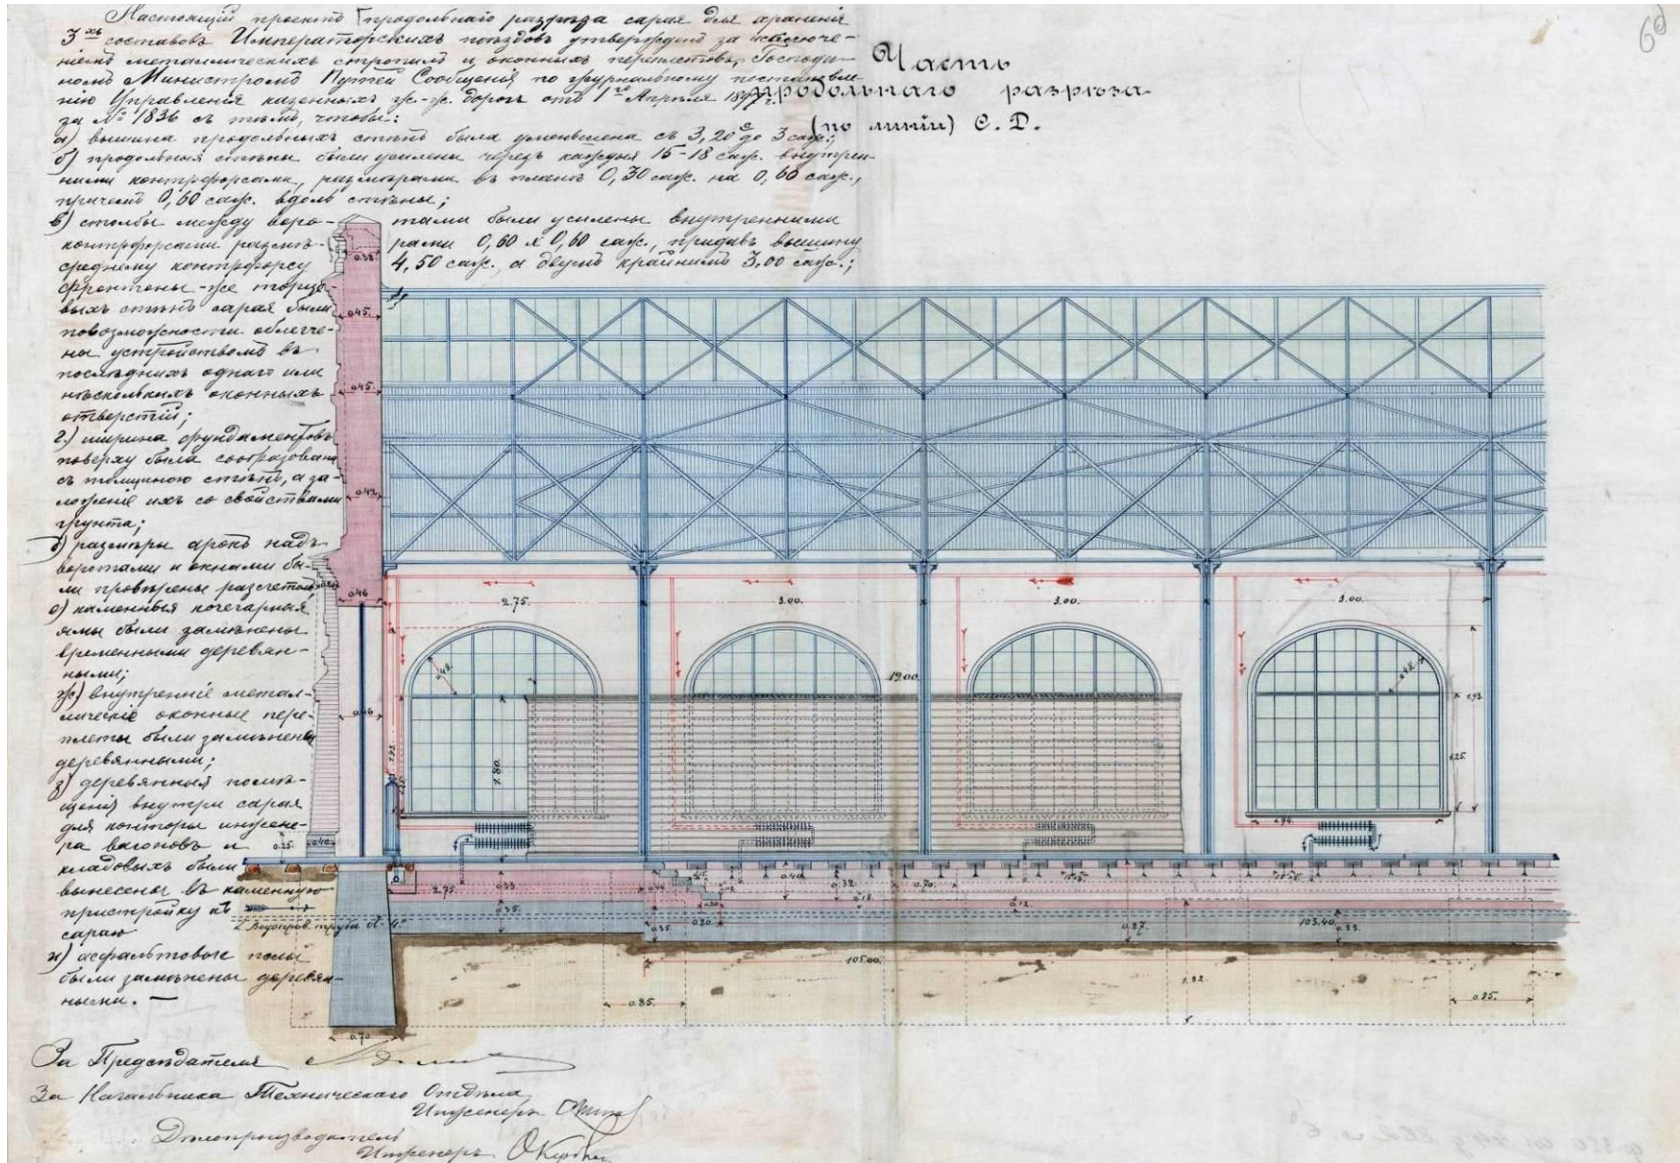 Настоящій проектъ продольнаго разрѣза сарая для храненія
3хъ составовъ Императорскихъ поѣздовъ утвержденъ за исключе-
ніемъ металлическихъ стропилъ и оконныхъ переплетовъ, Господи-
номъ Министромъ Путей Сообщенія по журнальному постановле-
нію Управленія казенныхъ ж.-ж. дорогъ отъ 1го Апрѣля 1897 г.
за № 1836 съ тѣмъ, чтобы:
а) вышина продольныхъ стѣнъ была уменьшена съ 3,20 с до 3 саж.;
б) продольныя стѣны были усилены черезъ каждыя 15-18 саж. внутрен-
ними контрфорсами, размѣрами въ планѣ 0,30 саж. на 0,60 саж.,
причемъ 0,60 саж. вдоль стѣны;
в) столбы между воро- тами были усилены внутренними
контрфорсами размѣ- рами 0,60 х 0,60 саж., придавъ вышину
среднему контрфорсу 4,50 саж., а двумъ крайнимъ 3,00 саж.;
фронтоны-же торцо-
выхъ стѣнъ сарая были
повозможности облегче-
ны устройствомъ въ
послѣднихъ одного или
нѣсколькихъ оконныхъ
отверстій;
г) ширина фундаментовъ
поверху была сообразована
съ толщиною стѣнъ, а за-
ложеніе ихъ со свойствами
грунта;
д) размѣры арокъ надъ
воротами и окнами бы-
ли провѣрены разсчетомъ
е) каменныя кочегарныя
ямы были замѣнены
временными деревян-
ными;
ж) внутренніе метал-
лическіе оконные пере-
плеты были замѣнены
деревянными;
з) деревянныя помѣ-
щенія внутри сарая
для конторы инжене-
ра вагоновъ и
кладовыхъ были
вынесены въ каменную
пристройку къ
сараю
и) асфальтовые полы
были замѣнены деревян-
ными. —
Часть
продольнаго разрѣза
(по линіи) С. D.
0.38
0.45
0.45
0.42
0.46
2.75
3.00
3.00
3.00
12.00
1.80
1.25
2.75
0.35
0.80
0.87
103.40
Водопров. труба d=4"
105.00
0.85
0.85
0.70
За Предсѣдателя
За Начальника Техническаго Отдѣла
Инженеръ
Дѣлопроизводитель
Инженеръ